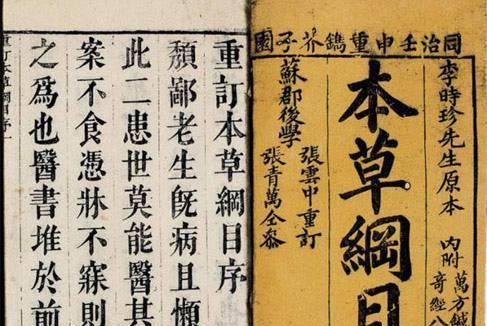 同治壬申重鐫芥子園
李時珍先生原本
內附
萬方鍼
奇經八
本草綱目
張雲中重訂
蘇郡後學
張青萬仝參
重訂本草綱目序
頽鄙老生旣病且懶
此二患世莫能醫其
案不食憑牀不寐則
之爲也醫書堆於前
重訂本草綱目序一